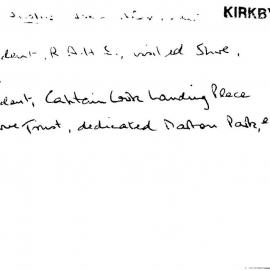 KIRKBY
dent, R.A.H.S., visited Shire,
dent, Captain Cook Landing Place
Trust, dedicated Marton Park,